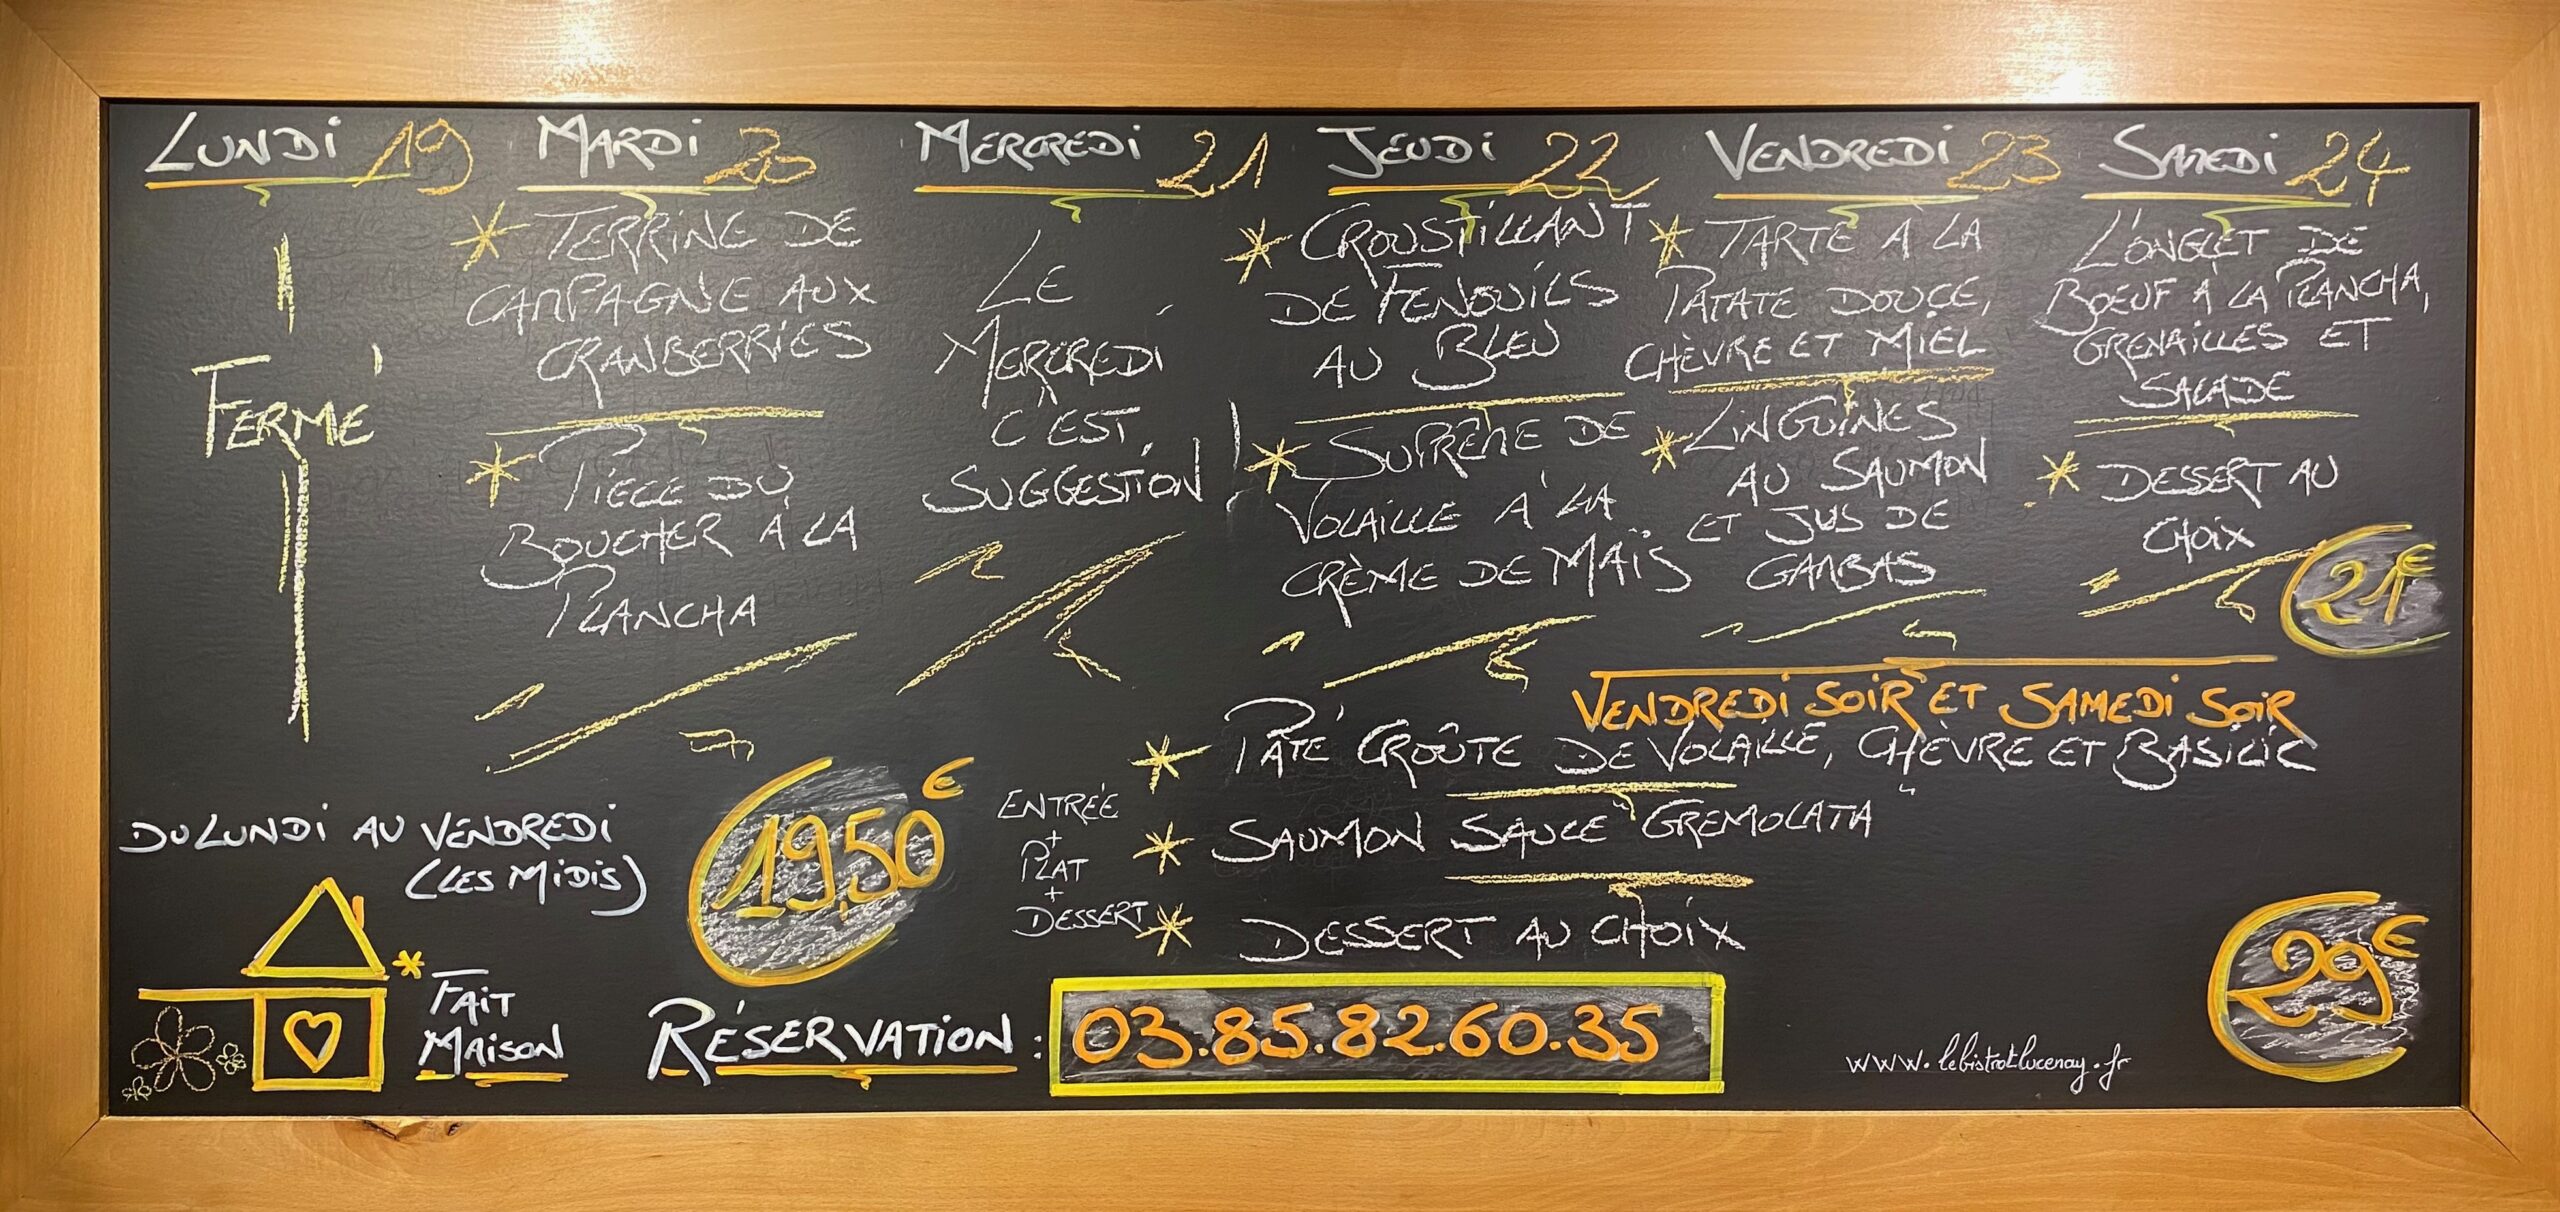 LUNDI 19
FERMÉ
MARDI 20
* TERRINE DE
CAMPAGNE AUX
CRANBERRIES
* PIÈCE DU
BOUCHER À LA
PLANCHA
MERCREDI 21
LE
MERCREDI
C'EST
SUGGESTION !
JEUDI 22
* CROUSTILLANT
DE FENOUILS
AU BLEU
* SUPRÊME DE
VOLAILLE À LA
CRÈME DE MAÏS
VENDREDI 23
* TARTE À LA
PATATE DOUCE,
CHÈVRE ET MIEL
* LINGUINES
AU SAUMON
ET JUS DE
GAMBAS
SAMEDI 24
L'ONGLET DE
BOEUF À LA PLANCHA,
GRENAILLES ET
SALADE
* DESSERT AU
CHOIX
21€
VENDREDI SOIR ET SAMEDI SOIR
* PÂTÉ CROÛTE DE VOLAILLE, CHÈVRE ET BASILIC
* SAUMON SAUCE "GREMOLATA"
* DESSERT AU CHOIX
29€
DU LUNDI AU VENDREDI
(LES MIDIS)
19,50€
ENTRÉE
+
PLAT
+
DESSERT
* FAIT
MAISON
RÉSERVATION : 03.85.82.60.35
www.lebistrotlucenay.fr